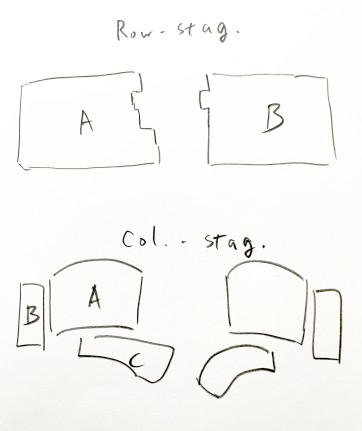 Row-stag.
A B
Col.-stag.
B A
C